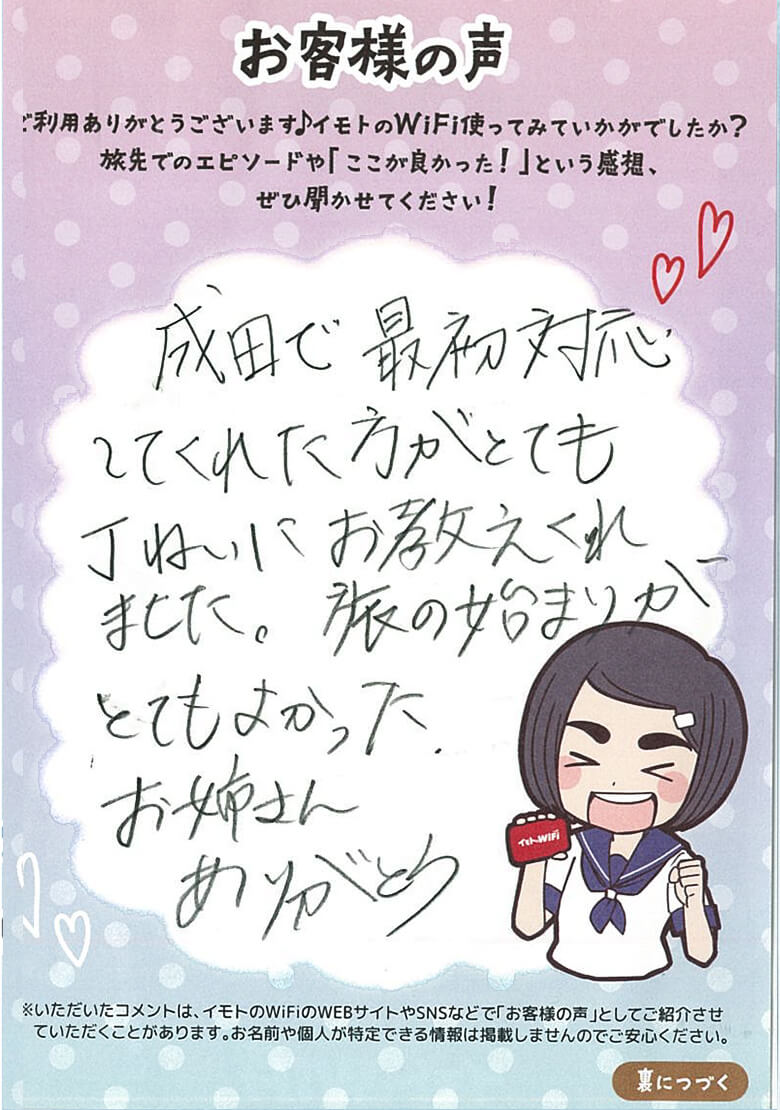 お客様の声
ご利用ありがとうございます♪イモトのWiFi使ってみていかがでしたか?
旅先でのエピソードや「ここが良かった!」という感想、
ぜひ聞かせてください!
成田で最初対応
してくれた方がとても
丁ねいにお教えくれ
ました。旅の始まりが
とてもよかった
お姉さん
ありがとう
イモトのWiFi
※いただいたコメントは、イモトのWiFiのWEBサイトやSNSなどで「お客様の声」としてご紹介させ
ていただくことがあります。お名前や個人が特定できる情報は掲載しませんのでご安心ください。
裏につづく